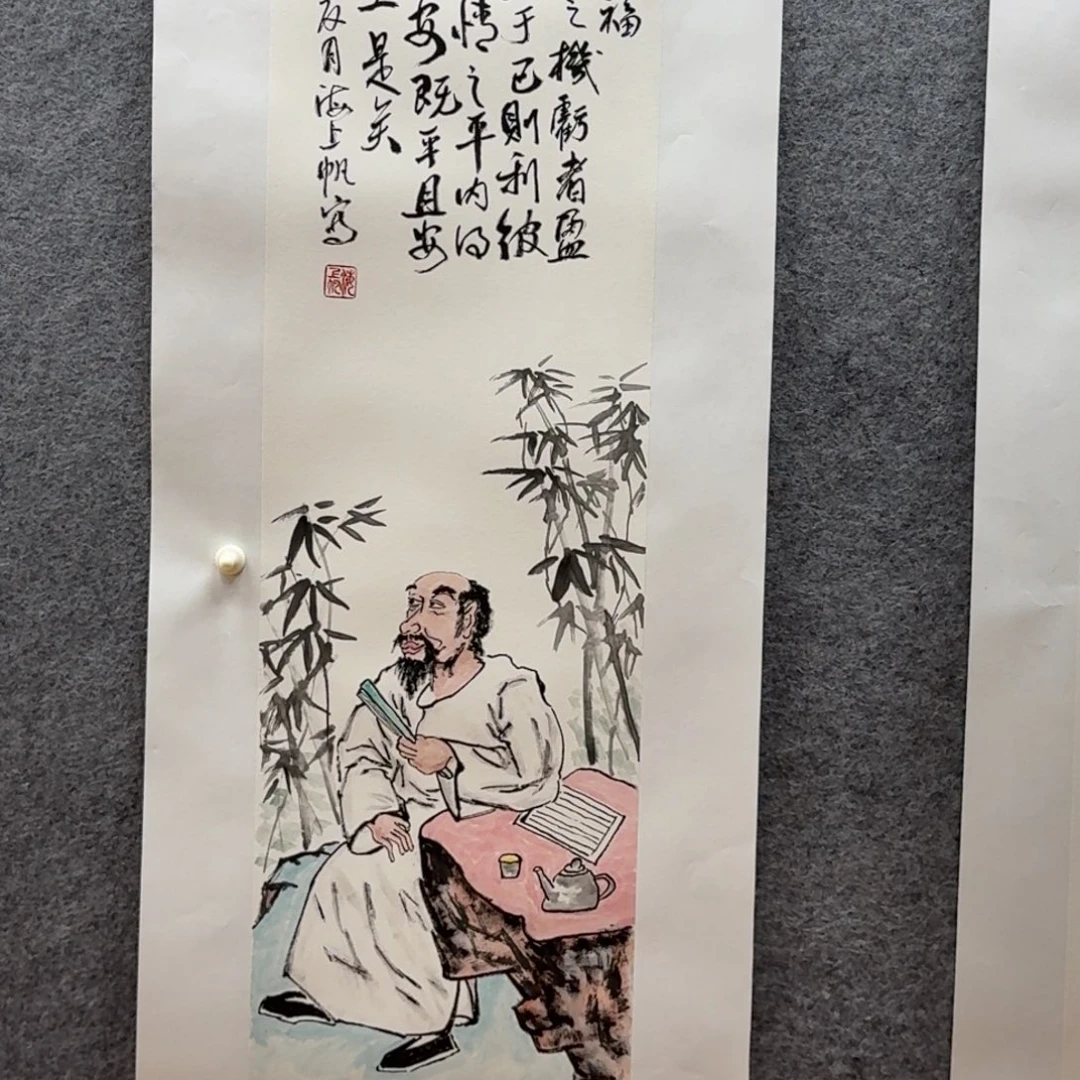 福
之機虧者盈
于己則利彼
情之平内得
安既平且安
是矣
月海上帆寫